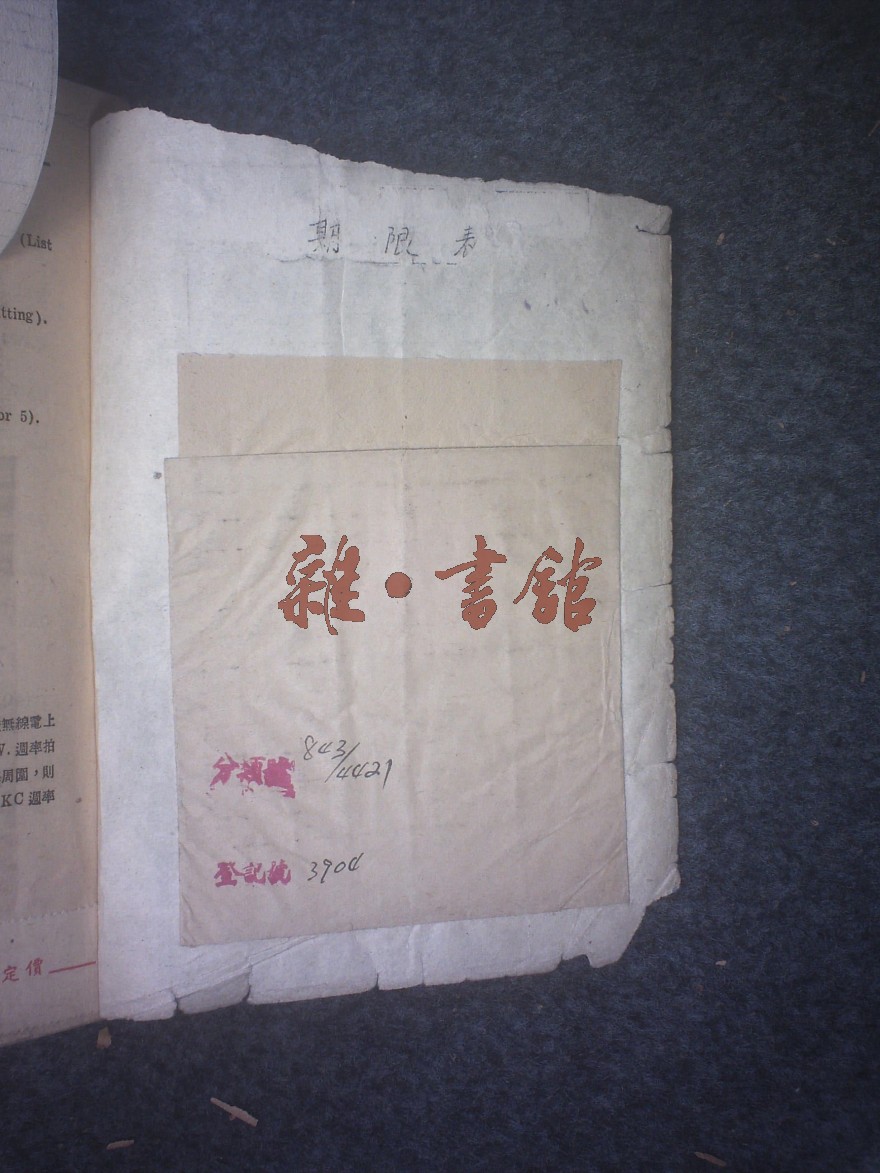 (List
tting).
or 5).
無線電上
週率拍
周圍，則
KC 週率
定價
期限表
雜·書館
分類號 843/4421
登記號 3904